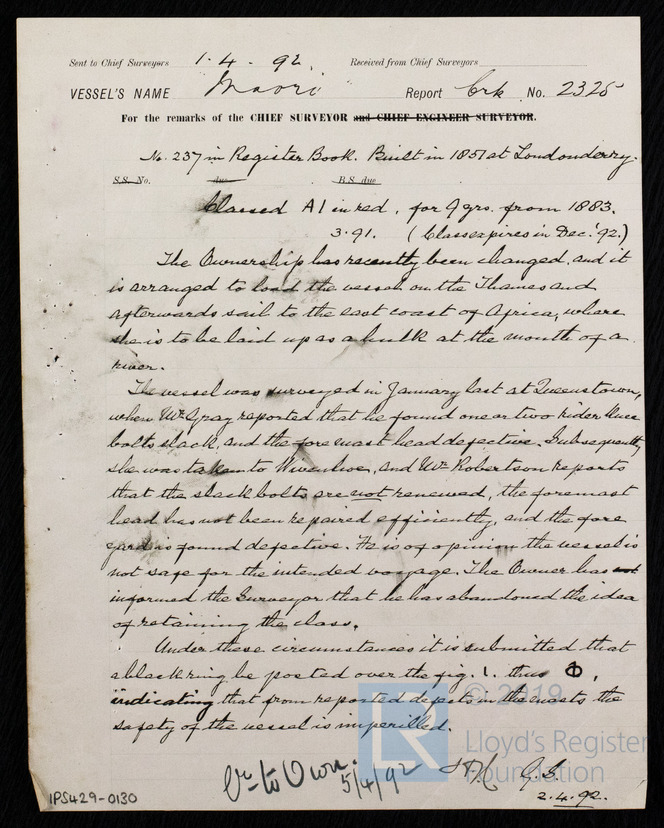 Sent to Chief Surveyors 1.4.92. Received from Chief Surveyors
VESSEL'S NAME Maori Report Crk No. 2325
For the remarks of the CHIEF SURVEYOR and CHIEF ENGINEER SURVEYOR.
No. 237 in Register Book. Built in 1851 at Londonderry.
S.S. No. due B.S. due
Classed A1 in red, for 9 yrs. from 1883.
3.91. (Class expires in Dec. '92.)
The Ownership has recently been changed, and it
is arranged to load the vessel on the Thames and
afterwards sail to the east coast of Africa, where
she is to be laid up as a hulk at the mouth of a
river.
The vessel was surveyed in January last at Queenstown,
when Mr. Gray reported that he found one or two rider knee
bolts slack, and the foremast head defective. Subsequently
she was taken to Wivenhoe, and Mr. Robertson reports
that the slack bolts are not renewed, the foremast
head has not been repaired efficiently, and the fore
yard is found defective. He is of opinion the vessel is
not safe for the intended voyage. The Owner has not
informed the Surveyor that he has abandoned the idea
of retaining the class.
Under these circumstances it is submitted that
a black ring be posted over the fig. 1. thus Φ,
indicating that from reported defects in the masts the
safety of the vessel is imperilled.
to Own.
5/4/92
G.S.
2.4.92.
1PS429-0130
© 2019
LR
Lloyd's Register
Foundation